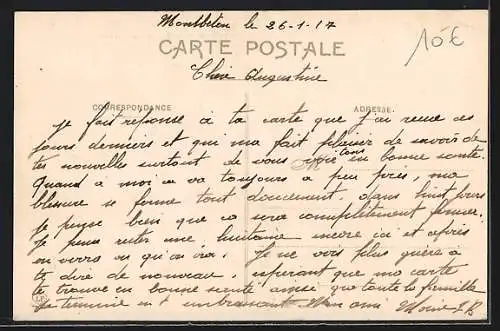 Montbeton le 26-1-17
10€
CARTE POSTALE
Chère Augustine
CORRESPONDANCE
ADRESSE
je fait reponse à ta carte que j'ai recue ces
jours derniers et qui ma fait plaisir de savoir de
tes nouvelles surtout de vous voire tous en bonne sante.
Quand a moi ca va toujours a peu près, ma
blessure se ferme tout doucement, dans huit jours
je pense bien que ca sera complètement fermer.
Je peux rester une huitaine encore ici et après
en vers ou qu'on ira. Je ne vois plus guère a
te dire de nouveau. esperant que ma carte
te trouve en bonne santé ainsi que toute la famille
je termine en t'embrassant ton ami